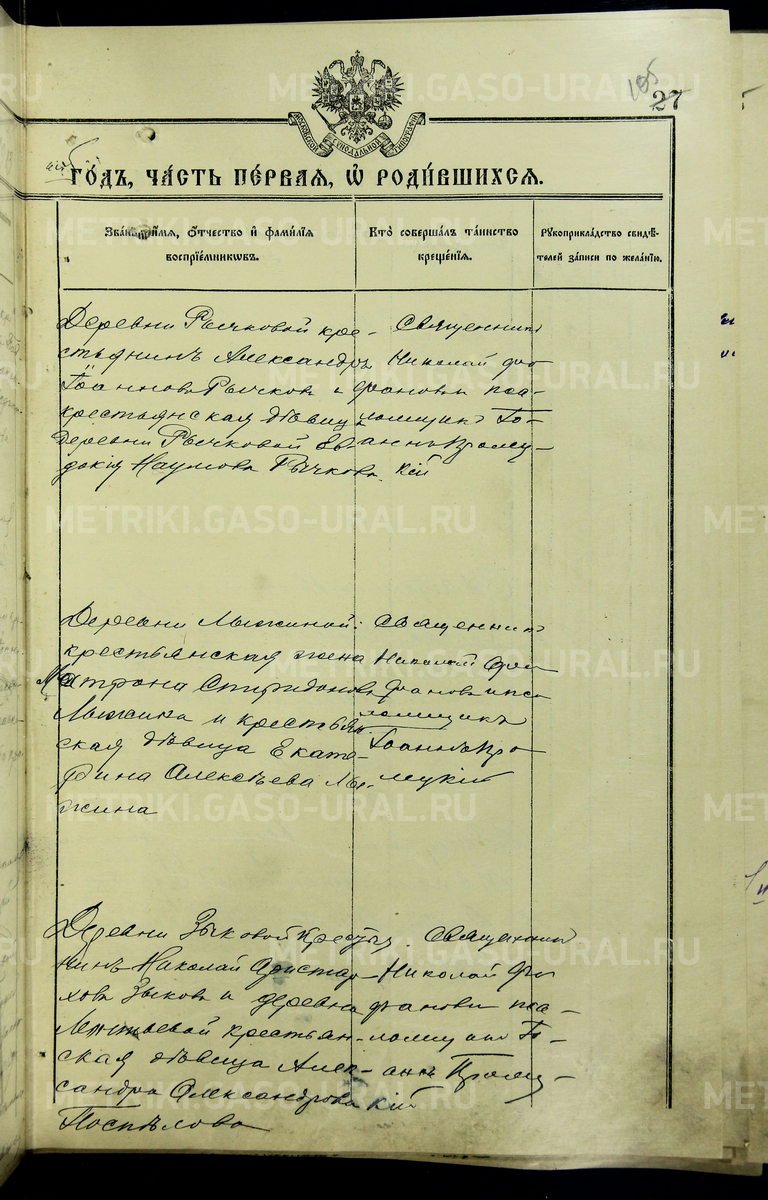 METRIKI.GASO-URAL.RU
105
27
МОСКОВСКОЙ СѴНОДАЛЬНОЙ ТИПОГРАФІИ
го́дъ, ча́сть пе́рвая, ѡ҆ роди́вшихся.
Зва́ніе, и҆́мя, о҆́тчество и҆ фами́лїя
воспрїе́мниковъ.
Кто̀ соверша́лъ та́инство
креще́нїя.
Рꙋкоприкла́дство свидѣ́-
телей за́писи по жела́нїю.
Деревни Рычковой кре-
стьянинъ Александръ
Іоанновъ Рычковъ и
крестьянская дѣвица
деревни Рычковой Ев-
докія Наумова Рычкова.
Священникъ
Николай
пса-
ломщикъ Іо-
аннъ
кій
METRIKI.GASO-URAL.RU
Деревни Лыжиной
крестьянская жена
Матрона Спиридонова
Лыжина и крестьян-
ская дѣвица Екате-
рина Алексѣева Лы-
жина
Священникъ
Николай
и пса
ломщикъ
Іоаннъ
METRIKI.GASO-URAL.RU
Деревни Зыковой крестья-
нинъ Николай Аристар-
ховъ Зыковъ и деревни
крестьян-
ская дѣвица Алек-
сандра Александрова
Поспѣлова
Священникъ
Николай
пса-
ломщикъ Іо-
аннъ
кій
METRIKI.GASO-URAL.RU